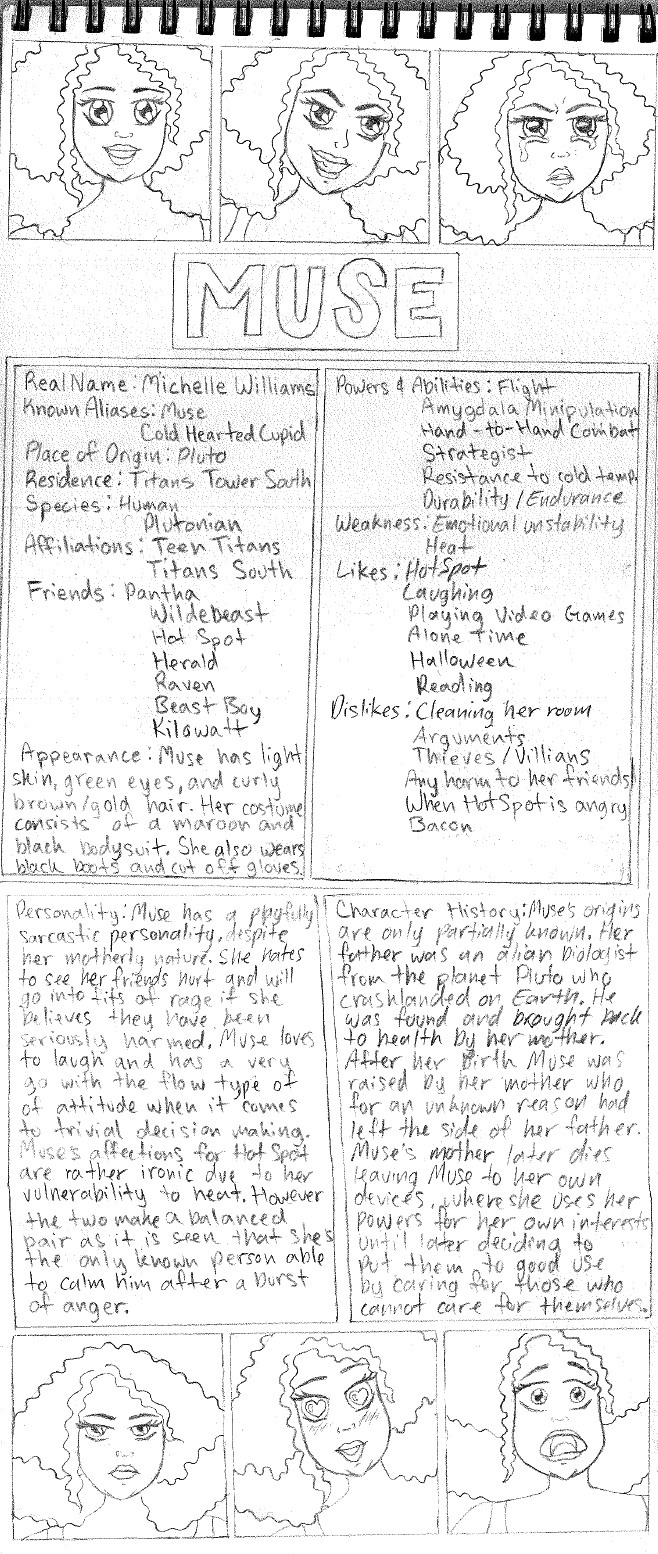 MUSE
Real Name: Michelle Williams
Known Aliases: Muse
Cold Hearted Cupid
Place of Origin: Pluto
Residence: Titans Tower South
Species: Human
Plutonian
Affiliations: Teen Titans
Titans South
Friends: Pantha
Wildebeast
Hot Spot
Herald
Raven
Beast Boy
Kilowatt
Appearance: Muse has light
skin, green eyes, and curly
brown/gold hair. Her costume
consists of a maroon and
black bodysuit. She also wears
black boots and cut off gloves.
Powers & Abilities: Flight
Amygdala Minipulation
Hand-to-Hand Combat
Strategist
Resistance to cold temp.
Durability/Endurance
Weakness: Emotional unstability
Heat
Likes: HotSpot
Laughing
Playing Video Games
Alone Time
Halloween
Reading
Dislikes: Cleaning her room
Arguments
Thieves/Villians
Any harm to her friends
When HotSpot is angry
Bacon
Personality: Muse has a playfully
sarcastic personality, despite
her motherly nature. She hates
to see her friends hurt and will
go into fits of rage if she
believes they have been
seriously harmed. Muse loves
to laugh and has a very
go with the flow type of
of attitude when it comes
to trivial decision making.
Muse's affections for Hot Spot
are rather ironic due to her
vulnerability to heat. However
the two make a balanced
pair as it is seen that she's
the only known person able
to calm him after a burst
of anger.
Character History: Muse's origins
are only partially known. Her
father was an alian biologist
from the planet Pluto who
crashlanded on Earth. He
was found and brought back
to health by her mother.
After her birth Muse was
raised by her mother who
for an unknown reason had
left the side of her father.
Muse's mother later dies
leaving Muse to her own
devices, where she uses her
powers for her own interests
until later deciding to
put them to good use
by caring for those who
cannot care for themselves.